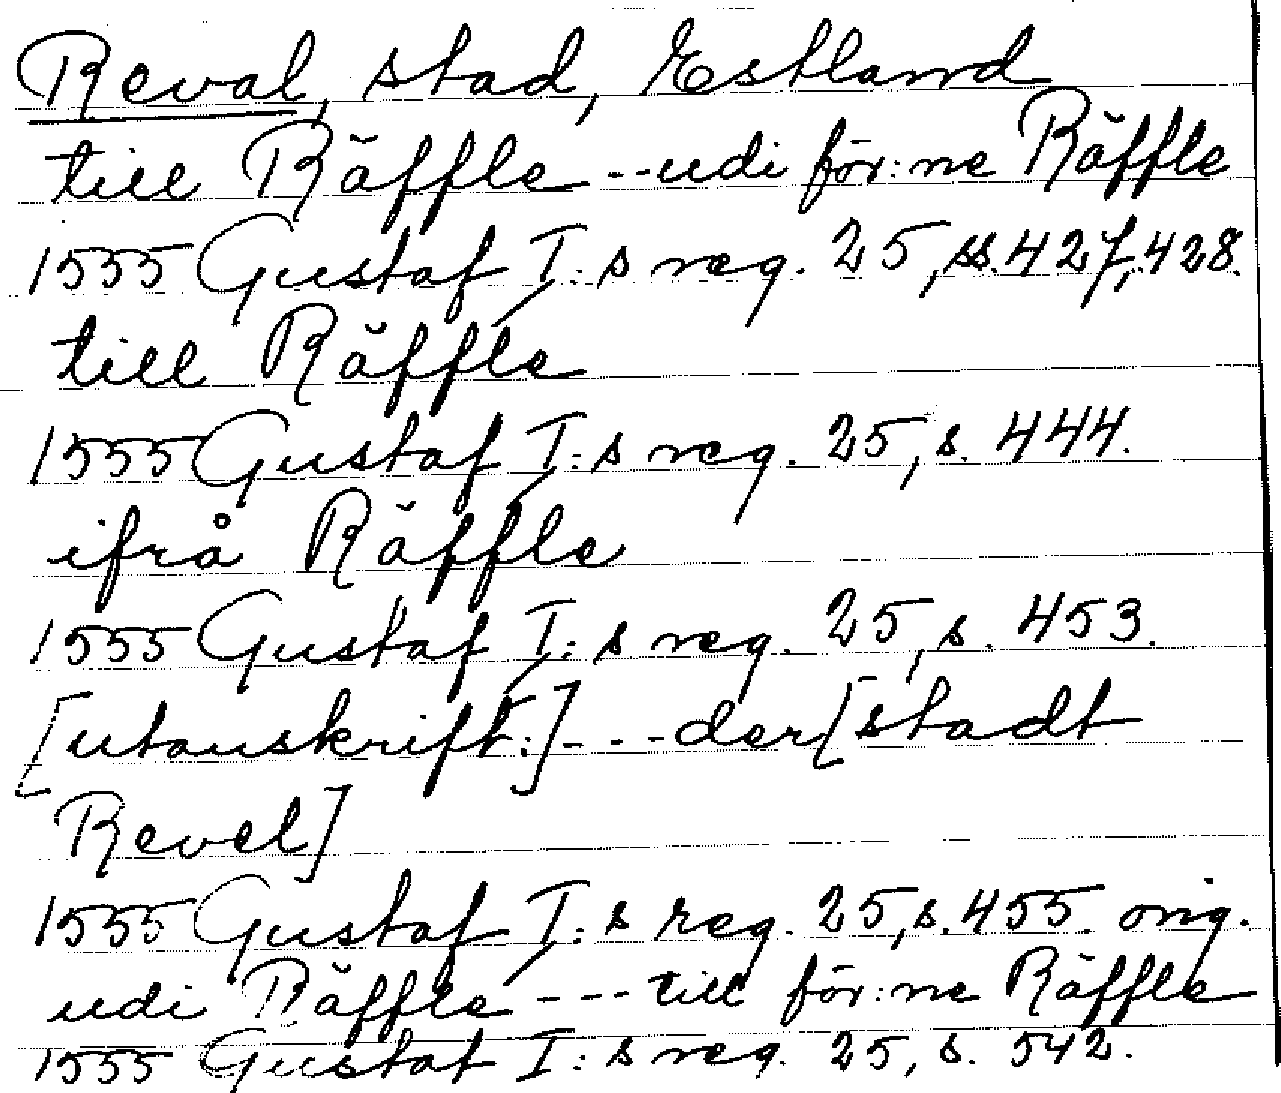 Reval, stad, Estland
till Räffle --udi för:ne Räffle
1555 Gustaf I:s reg. 25, ss. 427, 428.
till Räffle
1555 Gustaf I:s reg. 25, s. 444.
ifrå Räffle
1555 Gustaf I:s reg. 25, s. 453.
[utanskrift:] --- der [stadt
Revel]
1555 Gustaf I:s reg. 25, s. 455. orig.
udi Räffle --- till för:ne Räffle
1555 Gustaf I:s reg. 25, s. 542.